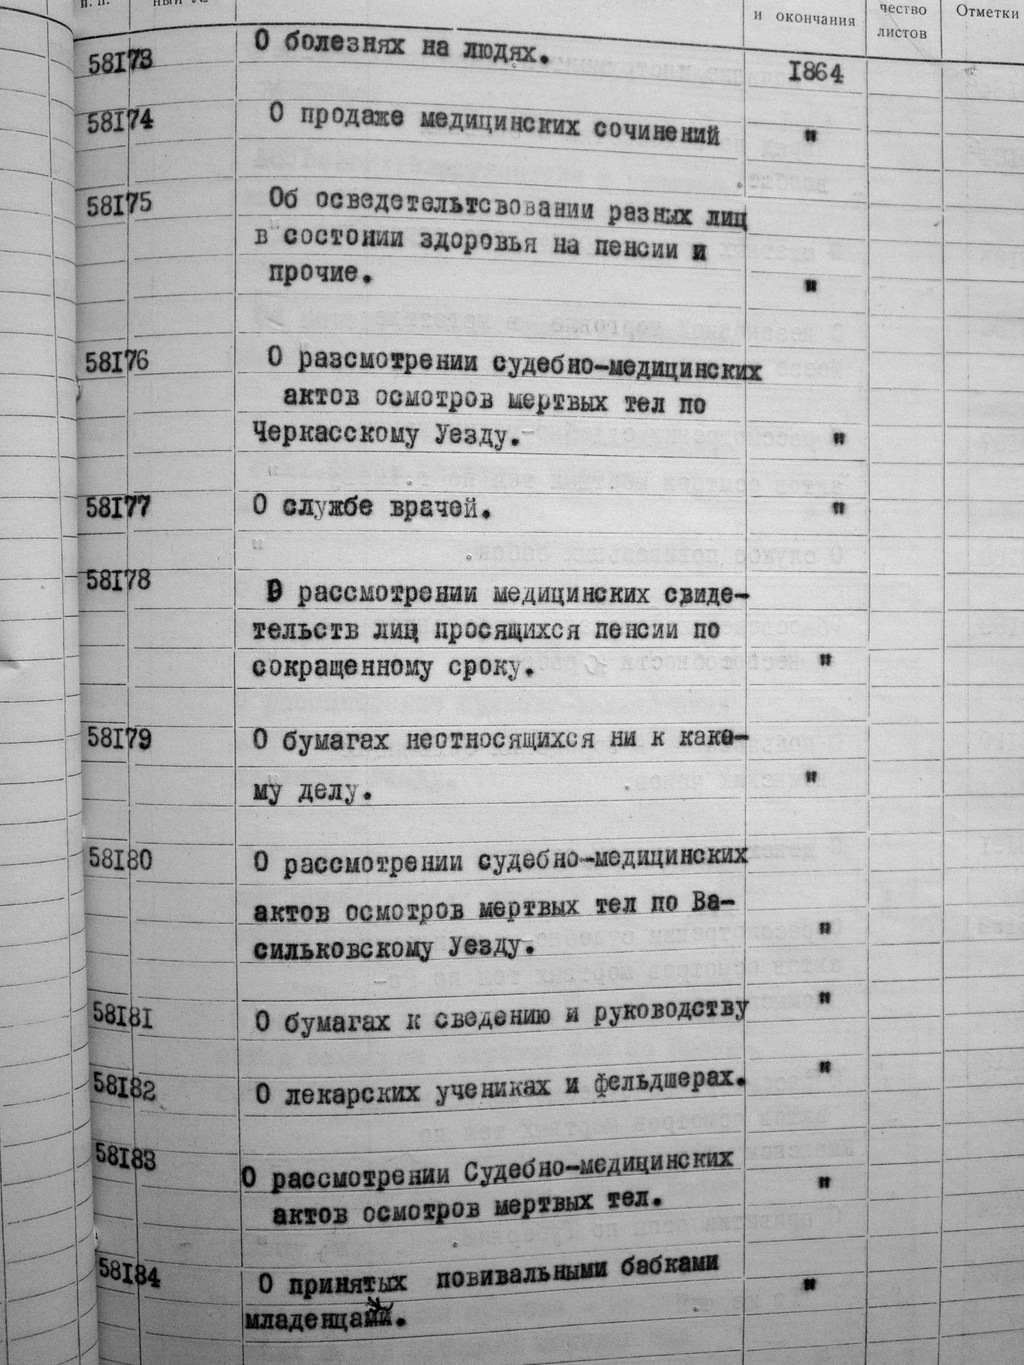 п. п.
ный №
и окончания
чество
листов
Отметки
58173
О болезнях на людях.
1864
58174
О продаже медицинских сочинений
"
58175
Об осведетельтсвовании разных лиц
в состонии здоровья на пенсии и
прочие.
"
58176
О разсмотрении судебно-медицинских
актов осмотров мертвых тел по
Черкасскому Уезду.
"
58177
О службе врачей.
"
58178
О рассмотрении медицинских свиде-
тельств лиц просящихся пенсии по
сокращенному сроку.
"
58179
О бумагах неотносящихся ни к како-
му делу.
"
58180
О рассмотрении судебно-медицинских
актов осмотров мертвых тел по Ва-
сильковскому Уезду.
"
58181
О бумагах к сведению и руководству
"
58182
О лекарских учениках и фельдшерах.
"
58183
О рассмотрении Судебно-медицинских
актов осмотров мертвых тел.
"
58184
О принятых повивальными бабками
младенцами.
"